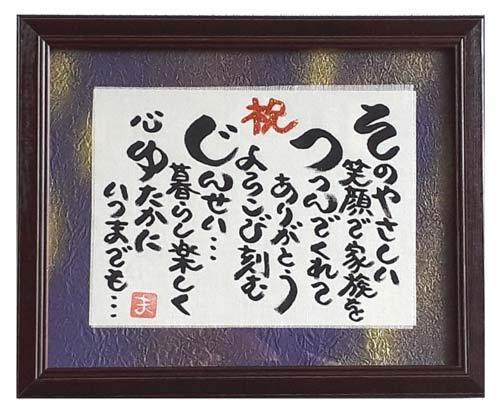 そのやさしい
笑顔で家族を
つつんでくれて
ありがとう
祝
よろこび刻む
じんせい…
暮らし楽しく
心ゆたかに
いつまでも…
ま